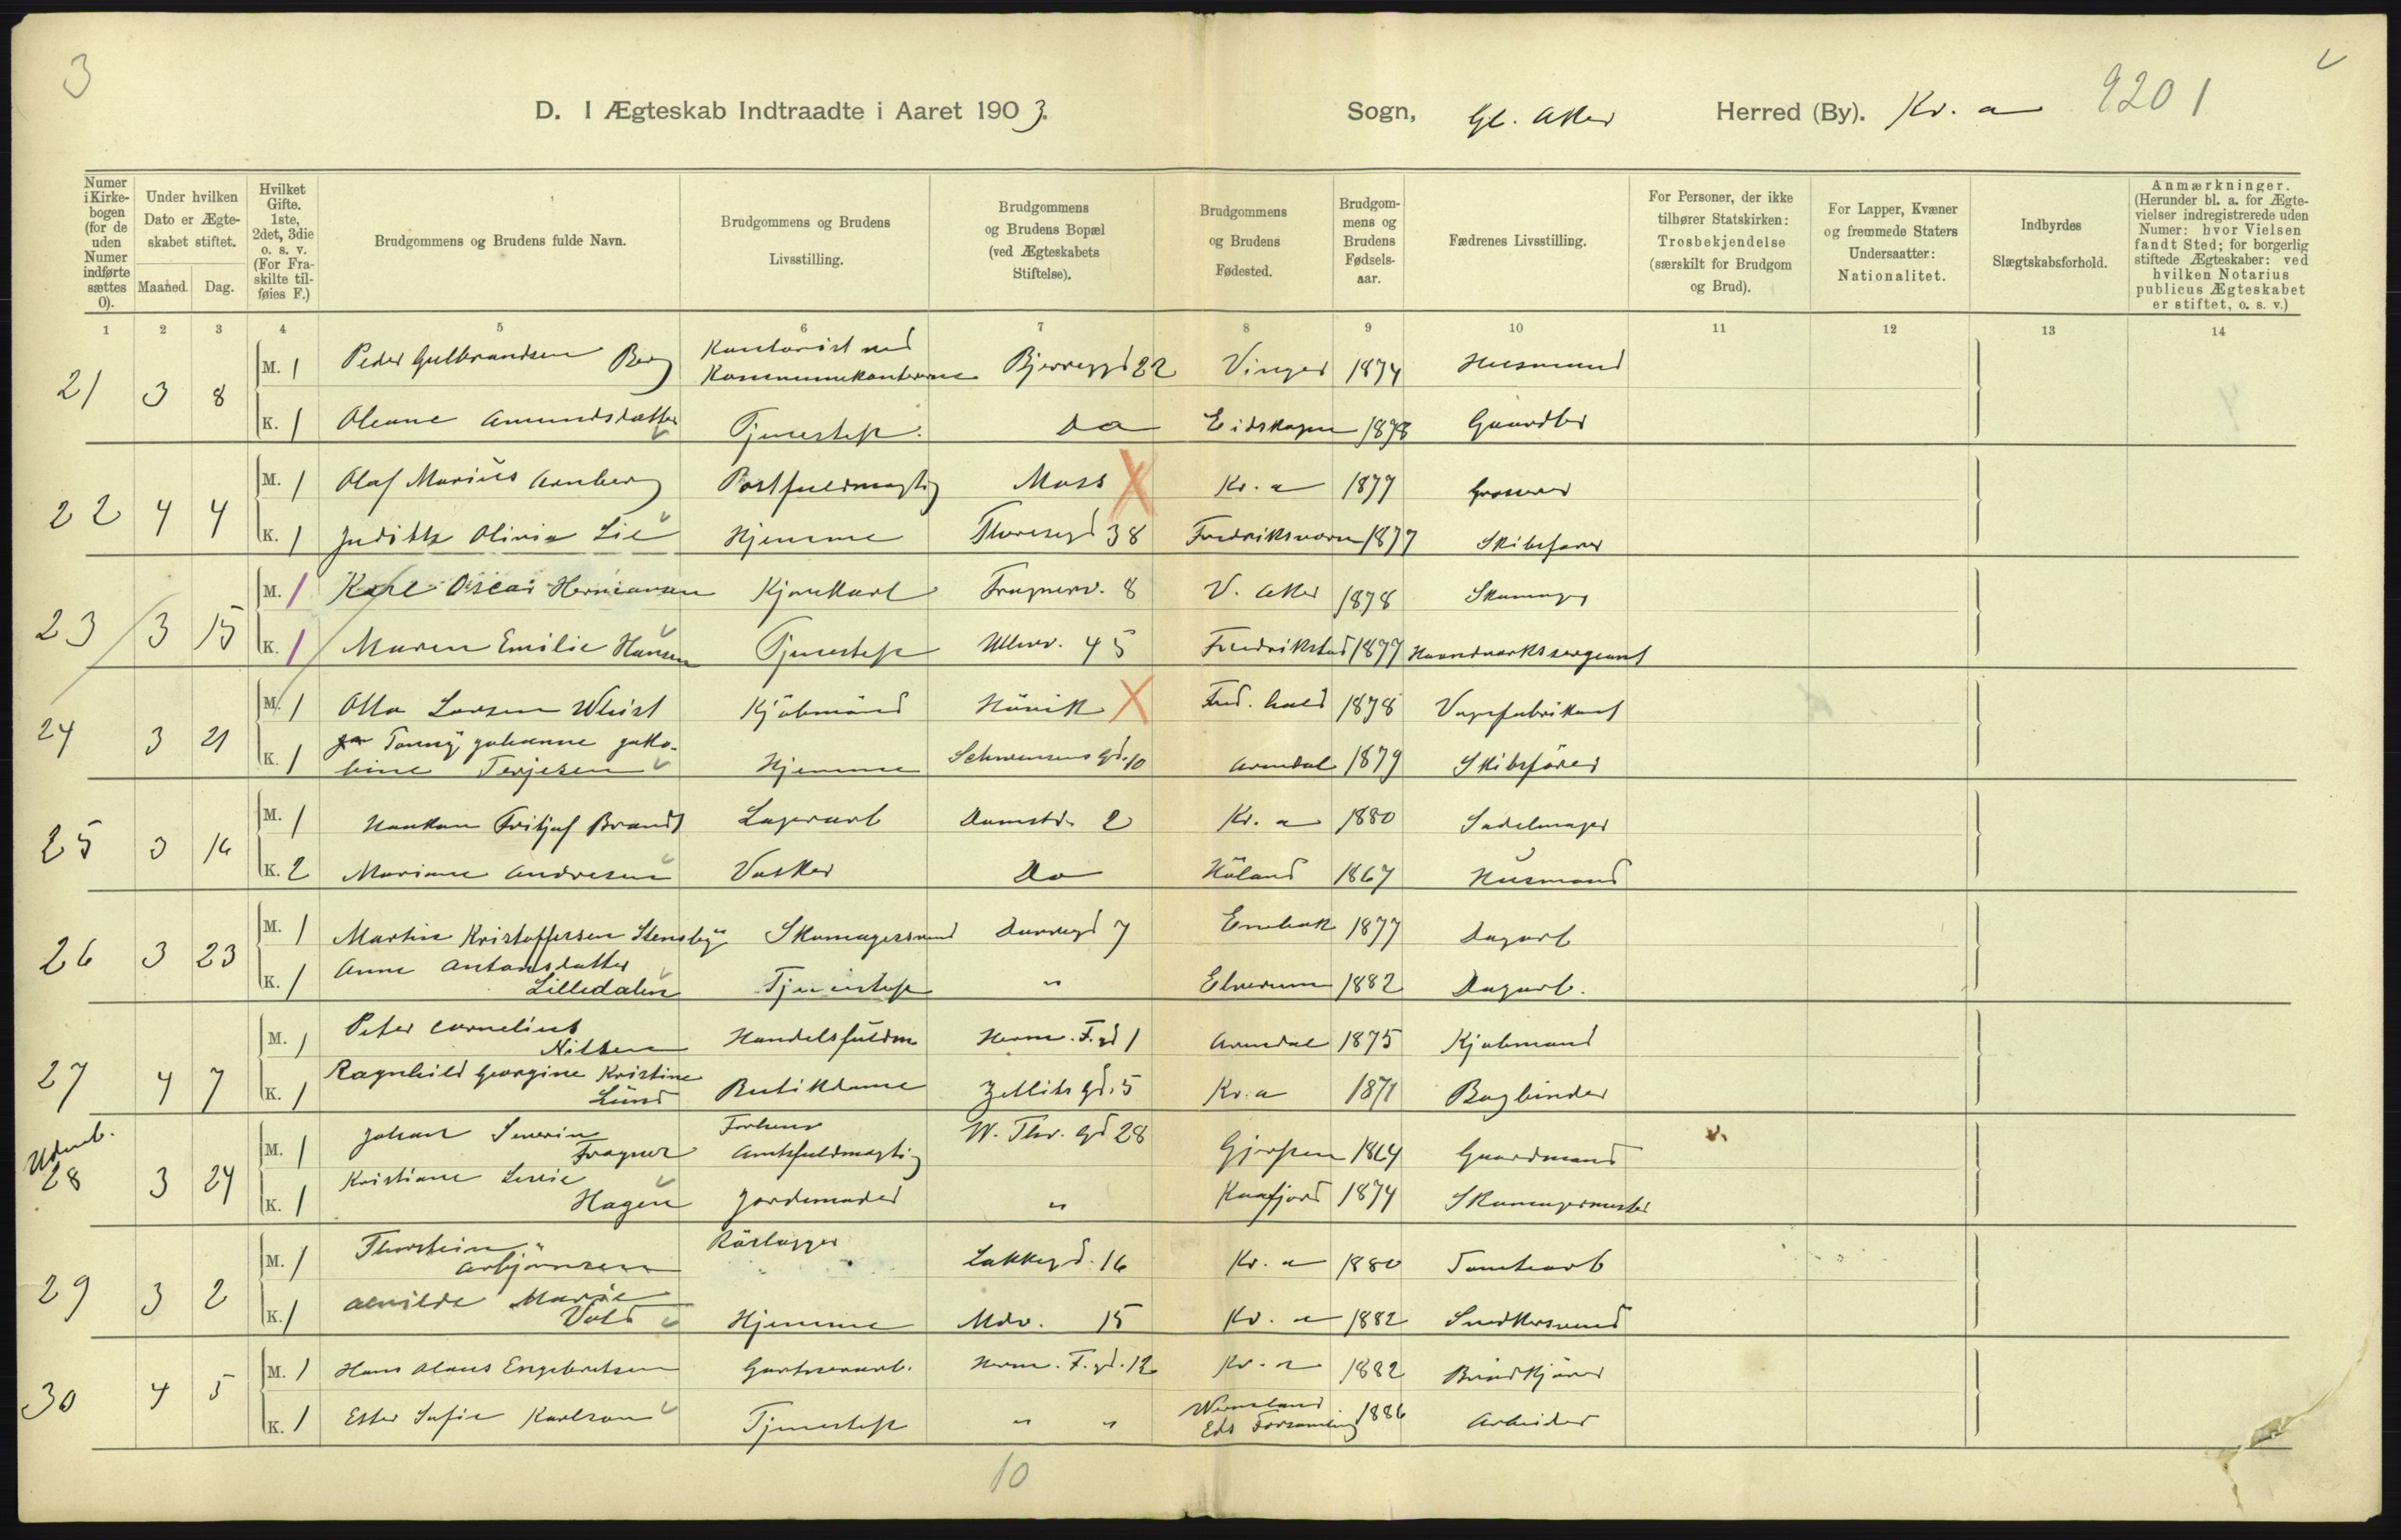 3
D. I Ægteskab Indtraadte i Aaret 1903. Sogn, Gl. Aker Herred (By). Kr. a 9201
Numer i Kirkebogen (for de uden Numer indførte sættes 0).
Under hvilken Dato er Ægteskabet stiftet. Maaned. Dag.
Hvilket Gifte. 1ste, 2det, 3die o. s. v. (For Fraskilte tilføies F.)
Brudgommens og Brudens fulde Navn.
Brudgommens og Brudens Livsstilling.
Brudgommens og Brudens Bopæl (ved Ægteskabets Stiftelse).
Brudgommens og Brudens Fødested.
Brudgommens og Brudens Fødselsaar.
Fædrenes Livsstilling.
For Personer, der ikke tilhører Statskirken: Trosbekjendelse (særskilt for Brudgom og Brud).
For Lapper, Kvæner og fremmede Staters Undersaatter: Nationalitet.
Indbyrdes Slægtskabsforhold.
Anmærkninger. (Herunder bl. a. for Ægtevielser indregistrerede uden Numer: hvor Vielsen fandt Sted; for borgerlig stiftede Ægteskaber: ved hvilken Notarius publicus Ægteskabet er stiftet, o. s. v.)
1 2 3 4 5 6 7 8 9 10 11 12 13 14
21 3 8 M. 1 Peder Gulbrandsen Berg Kontorist ved Kommunekontorerne Bjerregd 22 Vinger 1874 Husmand
K. 1 Oleane Amundsdatter Tjenestep. Do Eidskogen 1878 Gaardbr
22 4 4 M. 1 Olaf Marius Arnberg Postfuldmægtig Moss X Kr. a 1877 Grosserer
K. 1 Judith Olivia Lie Hjemme Theresegd 38 Fredriksværn 1877 Skibsfører
23 3 15 M. 1 Karl Oscar Hermansen Kjørekarl Frognerv. 8 V. Aker 1878 Skomager
K. 1 Maren Emilie Hansen Tjenestep Ullevv. 45 Fredrikstad 1877 Haandværkssergeant
24 3 21 M. 1 Otto Larsen Whist Kjøbmand Høvik X Fred. hald 1878 Vognfabrikant
K. 1 Tonny Johanne Jakobine Terjesen Hjemme Schwensens gd. 10 Arendal 1879 Skibsfører
25 3 16 M. 1 Haakon Fritjof Brandt Lagerarb Damstr. 2 Kr. a 1880 Sadelmager
K. 2 Mariane Andresen Vasker Do Høland 1867 Husmand
26 3 23 M. 1 Martin Kristoffersen Stensby Skomagersvend Darregd 7 Enebak 1877 Dagarb
K. 1 Anne Antonsdatter Lilledalen Tjenestep " Elverum 1882 Dagarb.
27 4 7 M. 1 Peter Cornelius Nilsen Handelsfuldm Herm. F. gd 1 Arendal 1875 Kjøbmand
K. 1 Ragnhild Georgine Kristine Lund Butikdame Zetlits gd. 5 Kr. a 1871 Bogbinder
Udenb.
28 3 24 M. 1 Johan Severin Frogner Forhenv Amtsfuldmægtig W. Thr. gd 28 Gjerpen 1864 Gaardmand
K. 1 Kristiane Hagen Jordemoder " Kaafjord 1874 Skomagermester
29 3 2 M. 1 Thorstein Asbjørnsen Rørlægger Lakkegd. 16 Kr. a 1880 Tomtearb
K. 1 Alvilde Marie Vold Hjemme Mdv. 15 Kr. a 1882 Snedkersvend
30 4 5 M. 1 Hans Olaus Engebretsen Gartnerarb. Herm. F. gd. 12 Kr. a 1882 Brødkjører
K. 1 Ester Sofie Karlson Tjenestep " " Wermland Eds Forsamling 1886 Arbeider
10